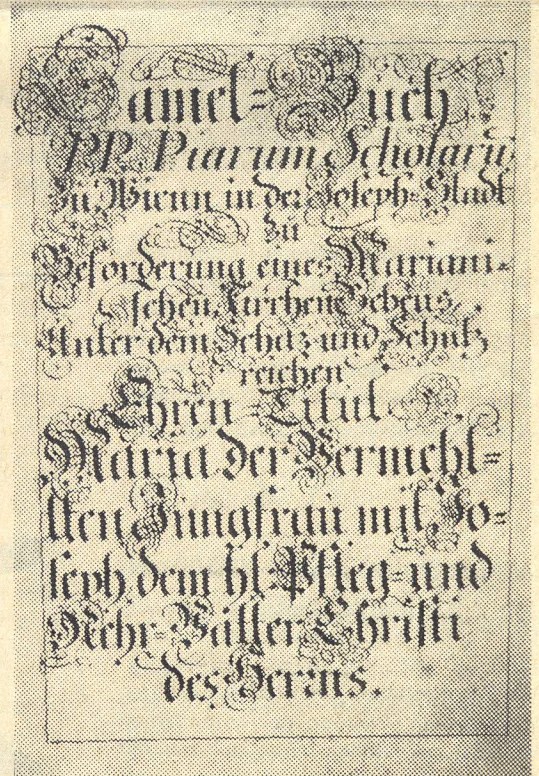 Samel=Buch
PP. Piarum Scholarū
Zu Wienn in der Joseph=Stadt
zu
Beförderung eines Mariani-
schen Kirchen Gebeus,
Unter dem Schutz und Schutz
reichen
Ehren=Titul
Maria der Vermehl=
ten Jungfrau mit Jo=
seph dem hl. Pfleg=und
Nehr=Vatter Christi
des Herrns.